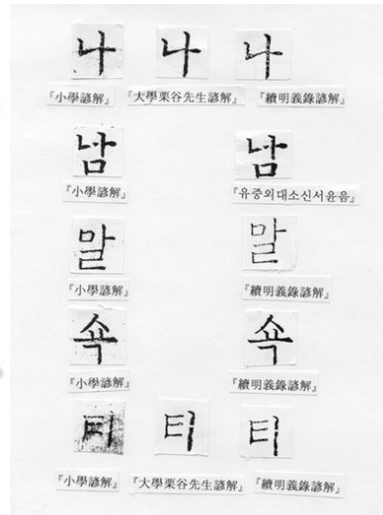 나 나 나
『小學諺解』 『大學栗谷先生諺解』 『續明義錄諺解』
남 남
『小學諺解』 『유중외대소신서윤음』
말 말
『小學諺解』 『續明義錄諺解』
쇽 쇽
『小學諺解』 『續明義錄諺解』
티 티 티
『小學諺解』 『大學栗谷先生諺解』 『續明義錄諺解』